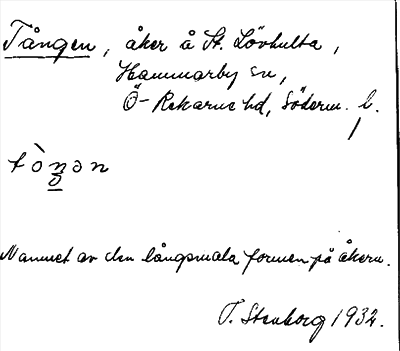 Tången, åker å St. Lövhulta,
Hammarby sn,
Ö-Rekarne hd, Söderm. l.
tònǝn
Namnet av den långsmala formen på åkern.
T. Stenborg 1932.